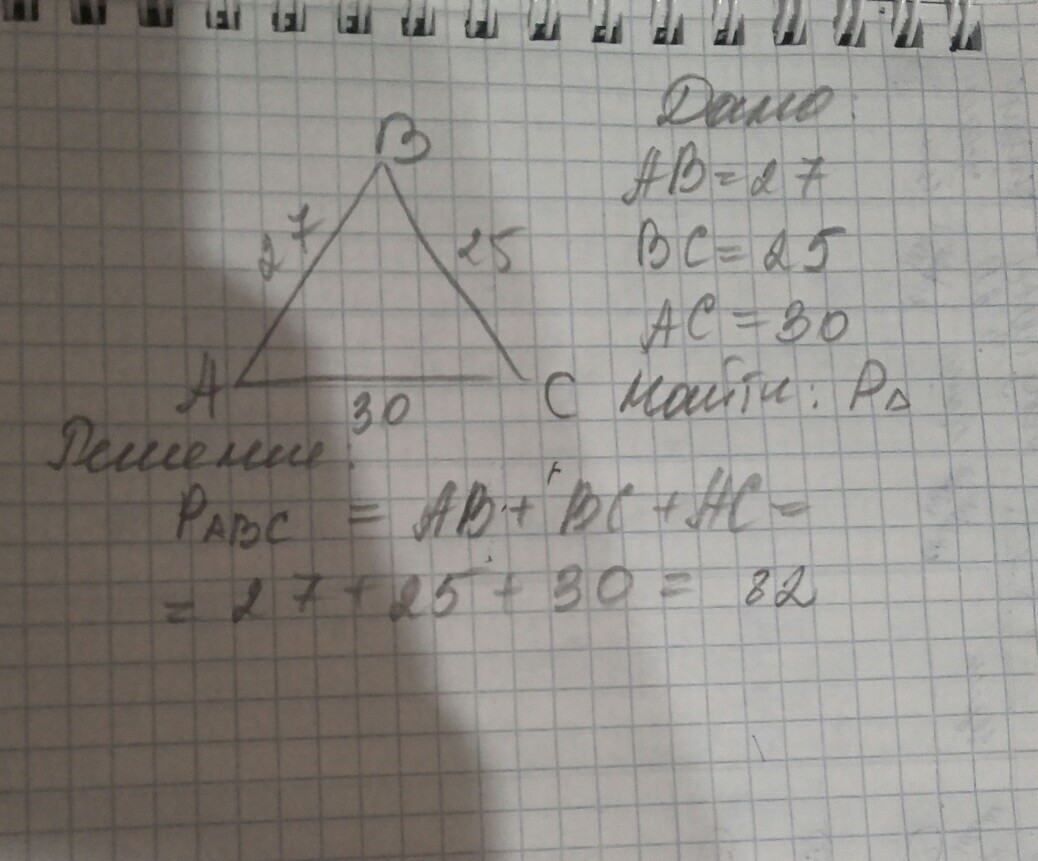 B
27
25
A
30
C
Дано:
AB = 27
BC = 25
AC = 30
Найти: P△
Решение:
P ABC = AB + BC + AC =
= 27 + 25 + 30 = 82